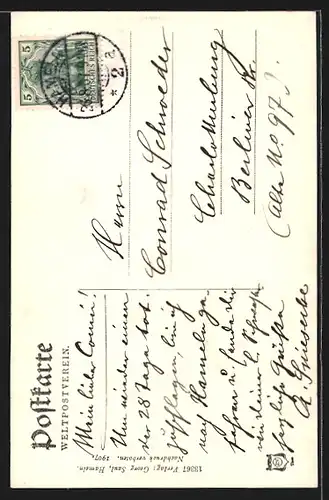 Postkarte
WELTPOSTVEREIN.
Mein lieber Conni!
Um wieder einen
der 28 Tage tot
zu schlagen, bin ich
nach Hameln ge-
fahren u. sende dir
u. deiner l.
herzliche Grüße
A.
13361 Verlag: Georg Saul, Hameln.
Nachdruck verboten. 1907.
Herrn
Conrad Schroeder
Charlottenburg
Berliner Str.
(Alte No 97)
5
DEUTSCHES REICH
5